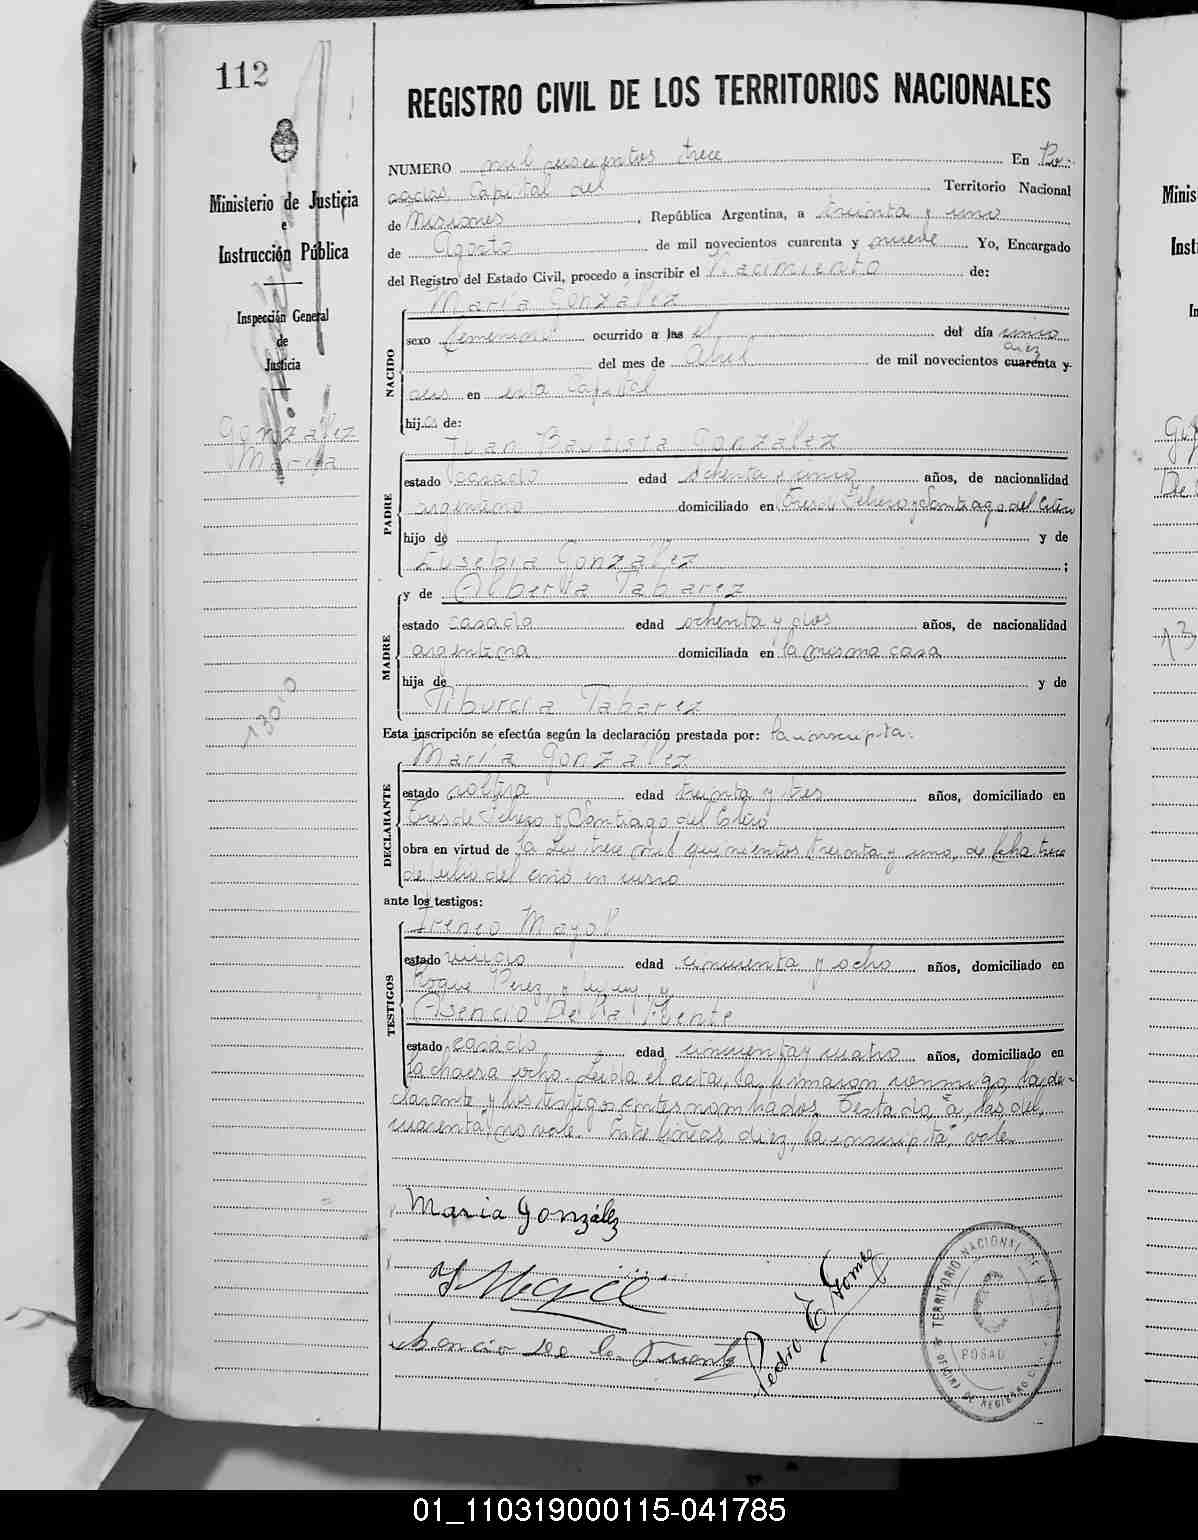 112
REGISTRO CIVIL DE LOS TERRITORIOS NACIONALES
Ministerio de Justicia
e
Instrucción Pública
Inspección General
de
Justicia
González
María
13010
NUMERO mil trece En Po-
sadas Capital del Territorio Nacional
de Misiones, República Argentina, a treinta y uno
de Agosto de mil novecientos cuarenta y nueve Yo, Encargado
del Registro del Estado Civil, procedo a inscribir el Nacimiento de:
NACIDO
María González
sexo femenino ocurrido a las el del día
diez
del mes de Abril de mil novecientos cuarenta y
seis en esta Capital
hija de:
PADRE
Juan Bautista González
estado casado edad ochenta y uno años, de nacionalidad
argentino domiciliado en Tres de Febrero y Santiago del Estero
hijo de y de
Eusebia González ;
MADRE
y de Alberta Tabarez
estado casada edad ochenta y dos años, de nacionalidad
argentina domiciliada en la misma casa
hija de y de
Tiburcia Tabarez
Esta inscripción se efectúa según la declaración prestada por: la inscripta.
DECLARANTE
María González
estado soltera edad treinta y tres años, domiciliado en
Tres de Febrero y Santiago del Estero
obra en virtud de la Ley trece mil quinientos treinta y uno, de fecha trece
de julio del año en curso
ante los testigos:
TESTIGOS
Ireneo Mayol
estado viudo edad cincuenta y ocho años, domiciliado en
Roque Perez y Jujuy, y
Asencio De la Fuente
estado casado edad cincuenta y cuatro años, domiciliado en
la chacra ocho. Leída el acta, la firmaron conmigo, la de-
clarante y los testigos antes nombrados. Testado "a las, del,
cuarenta" no vale. Entre líneas "diez, la inscripta" vale.
Maria González
Asencio De la Fuente
Pedro E. Gomez
TERRITORIO NACIONAL DE
POSAD
OFICINA DE REGISTRO
Minis
Inst
In
De
01_110319000115-041785